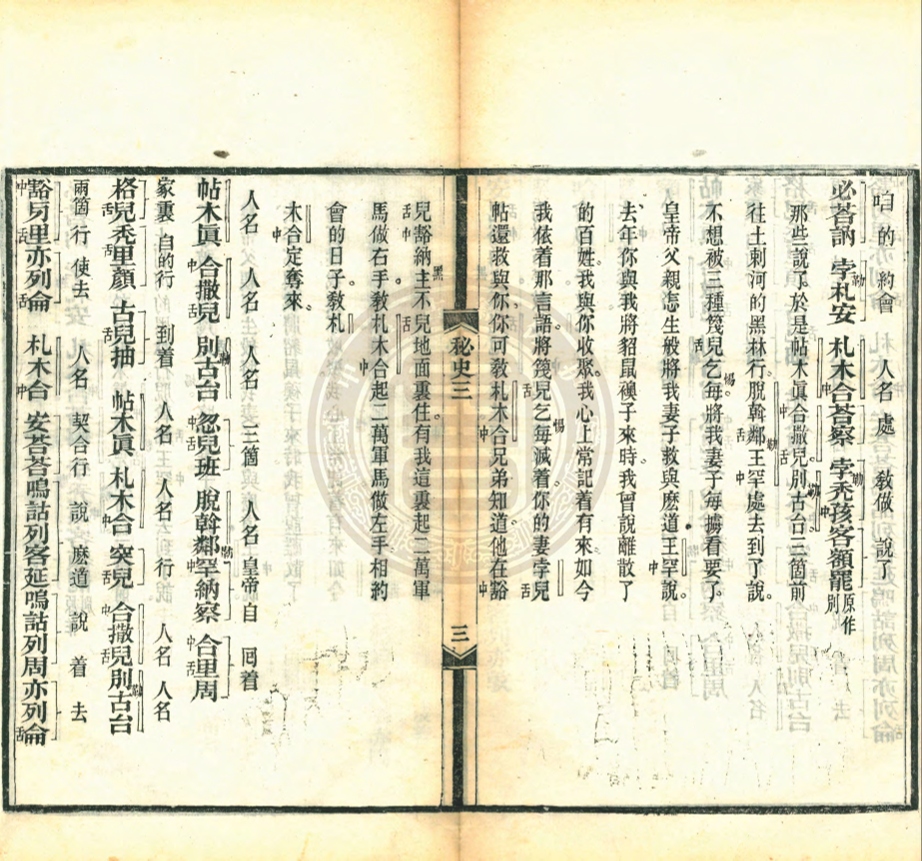 咱的 約會 人名處 敎做 說了
必荅訥 孛札安 札木合荅察 孛禿孩客額罷 原作別
那些說了。於是帖木眞合撒兒别古台三箇前
往土剌河的黑林行脫斡鄰王罕處去到了說。
不想被三種篾兒乞每將我妻子每擄看要了。
皇帝父親怎生般將我妻子救與麽道王罕說。
去年你與我將貂鼠襖子來時。我曾說離散了
的百姓。我與你收聚。我心上常記着有來如今
我依着那言語。將篾兒乞每滅着。你的妻孛兒
帖還救與你。你可敎札木合兄弟知道。他在豁
秘史三
三
兒豁納主不兒地面裏住。有我這裏起二萬軍
馬做右手。敎札木合起二萬軍馬做左手相約
會的日子。敎札
木合定奪來。
人名 人名 人名 三箇 人名 皇帝 自 囘着
帖木眞 合撒兒 别古台 忽兒班 脫斡鄰罕納察 合里周
家裏 自的行 到着 人名 人名 行 人名 人名
格兒禿里顏 古兒抽 帖木眞 札木合 突兒 合撒兒别古台
兩箇行 使去 人名 契合行 說 麽道 說着 去
豁牙里亦列侖 札木合 安荅荅鳴詁列客延鳴詁列周亦列侖